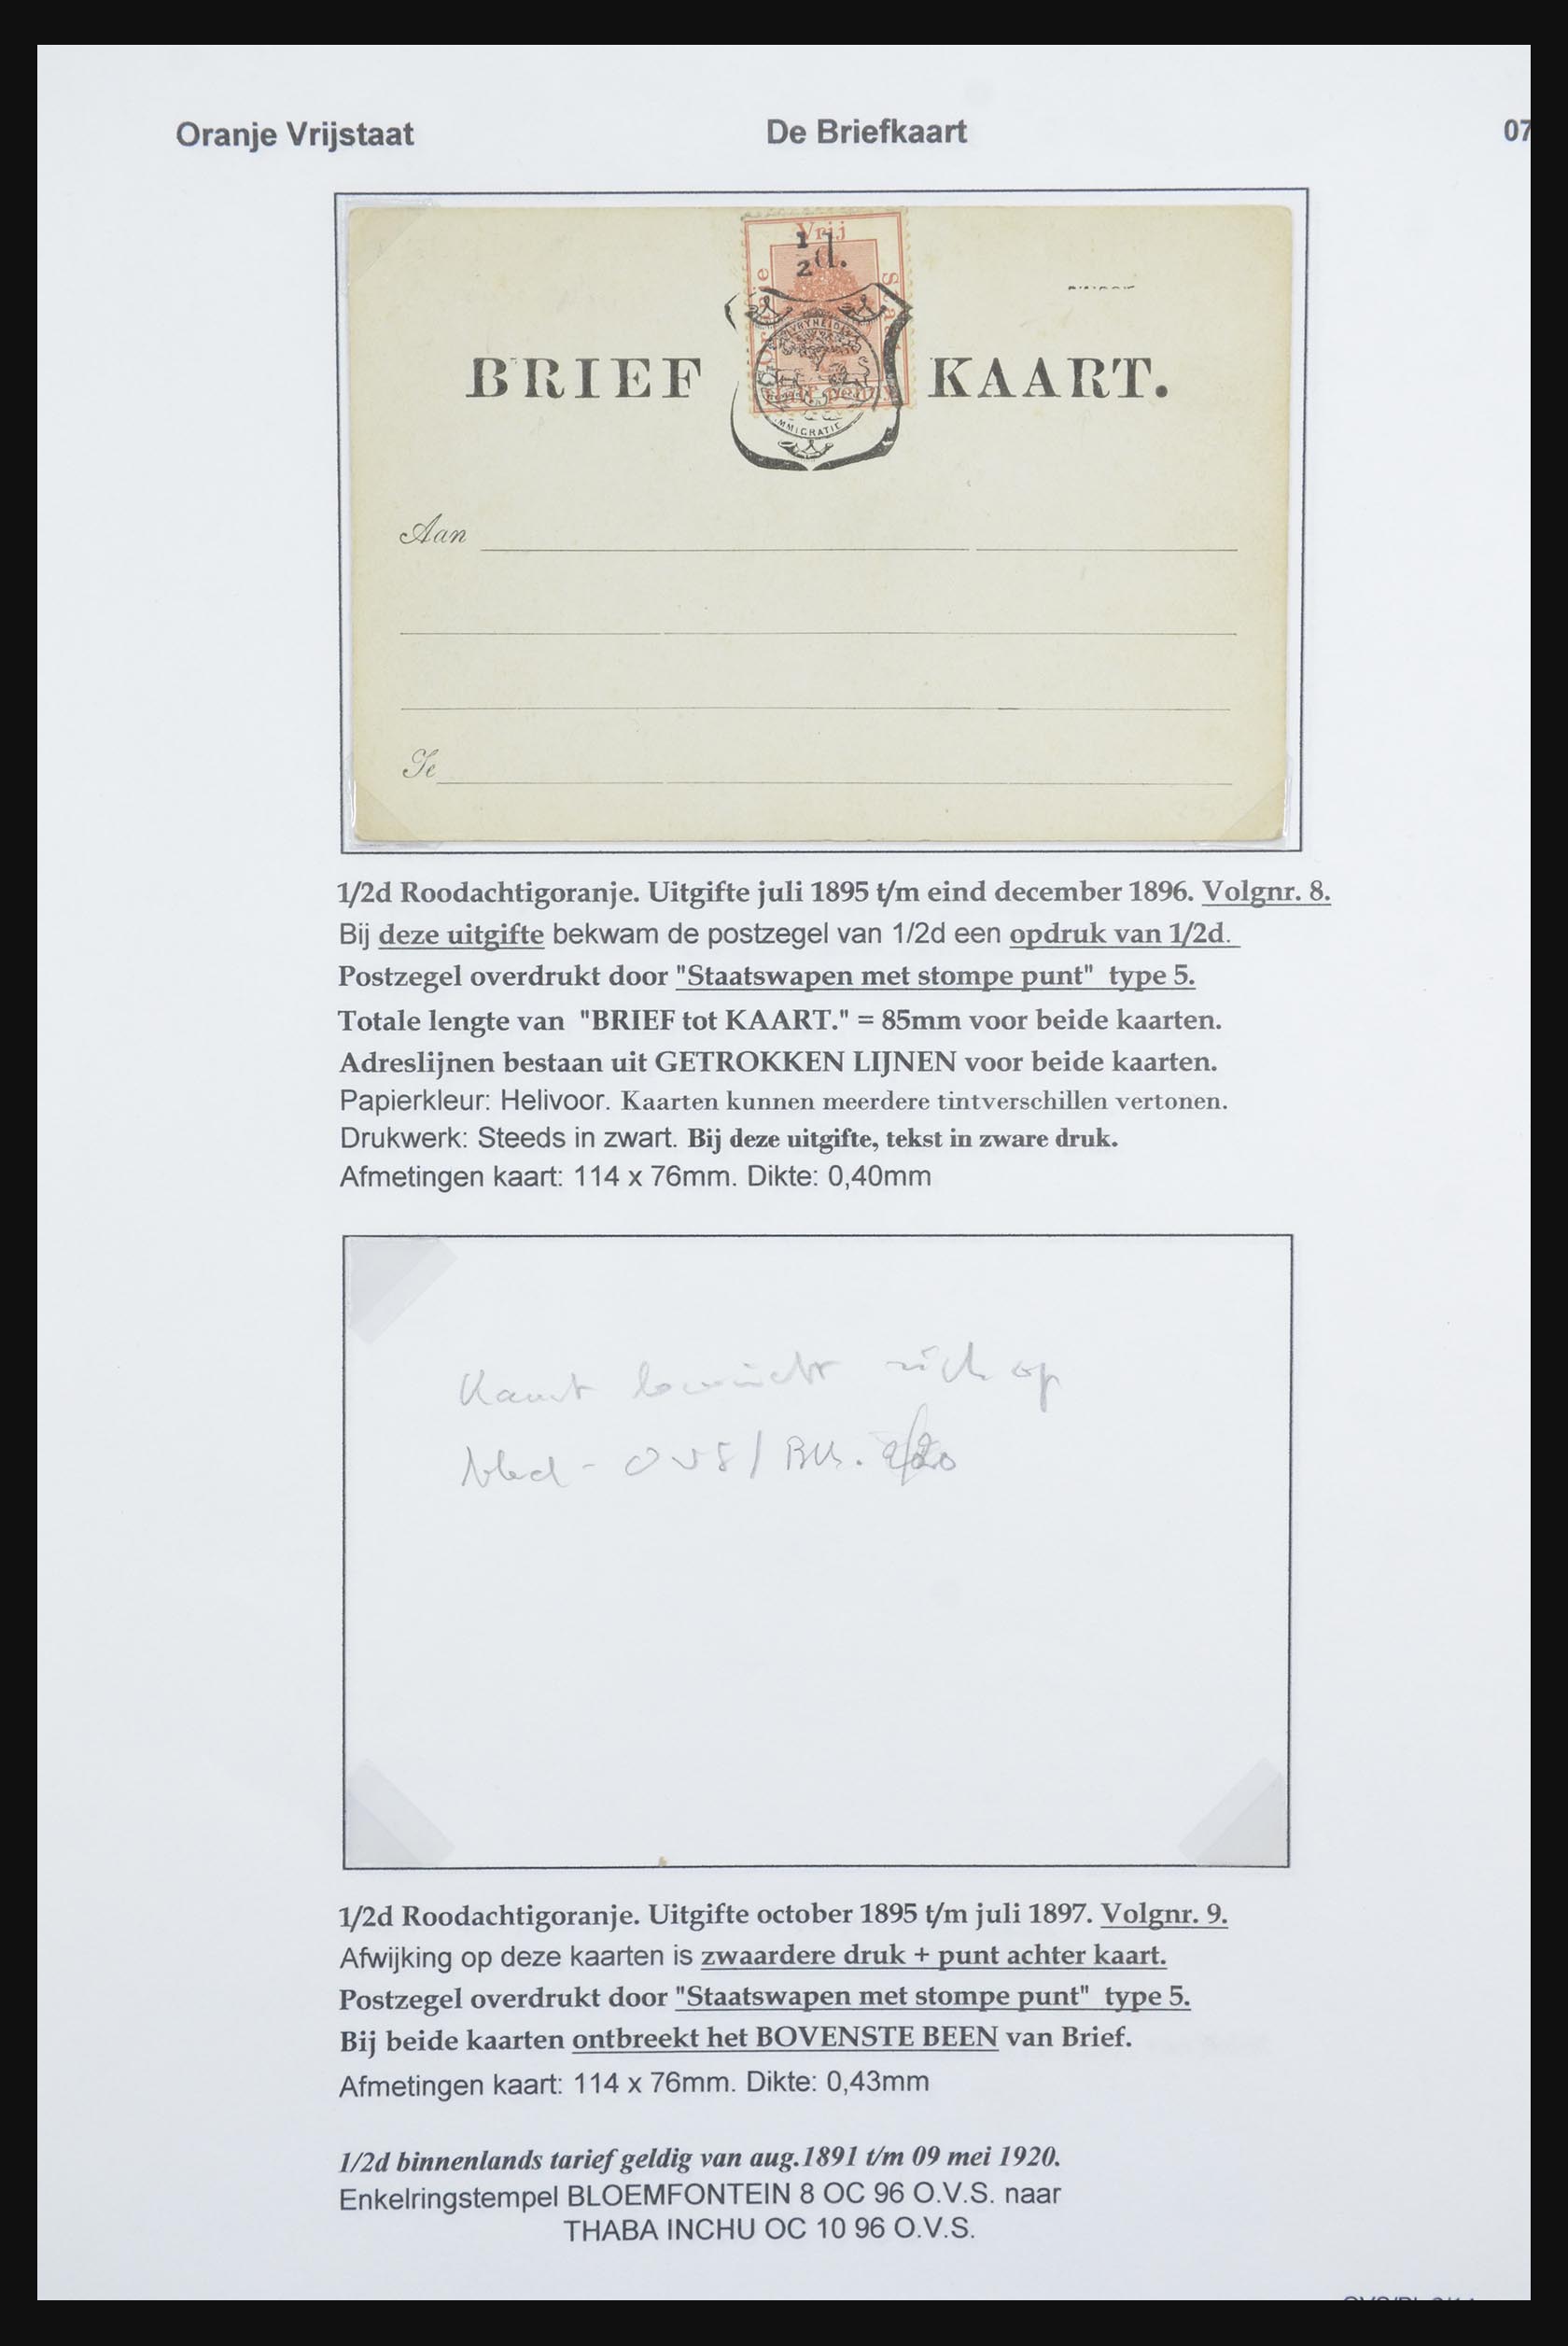 Oranje Vrijstaat De Briefkaart 07
Vrij
1/2 d.
Staat
VRYHEID
IMMIGRATIE
BRIEF KAART.
Aan
Te
1/2d Roodachtigoranje. Uitgifte juli 1895 t/m eind december 1896. Volgnr. 8.
Bij deze uitgifte bekwam de postzegel van 1/2d een opdruk van 1/2d.
Postzegel overdrukt door "Staatswapen met stompe punt" type 5.
Totale lengte van "BRIEF tot KAART." = 85mm voor beide kaarten.
Adreslijnen bestaan uit GETROKKEN LIJNEN voor beide kaarten.
Papierkleur: Helivoor. Kaarten kunnen meerdere tintverschillen vertonen.
Drukwerk: Steeds in zwart. Bij deze uitgifte, tekst in zware druk.
Afmetingen kaart: 114 x 76mm. Dikte: 0,40mm
Kaart bevindt zich op
blad - OVS/
1/2d Roodachtigoranje. Uitgifte october 1895 t/m juli 1897. Volgnr. 9.
Afwijking op deze kaarten is zwaardere druk + punt achter kaart.
Postzegel overdrukt door "Staatswapen met stompe punt" type 5.
Bij beide kaarten ontbreekt het BOVENSTE BEEN van Brief.
Afmetingen kaart: 114 x 76mm. Dikte: 0,43mm
1/2d binnenlands tarief geldig van aug.1891 t/m 09 mei 1920.
Enkelringstempel BLOEMFONTEIN 8 OC 96 O.V.S. naar
THABA INCHU OC 10 96 O.V.S.